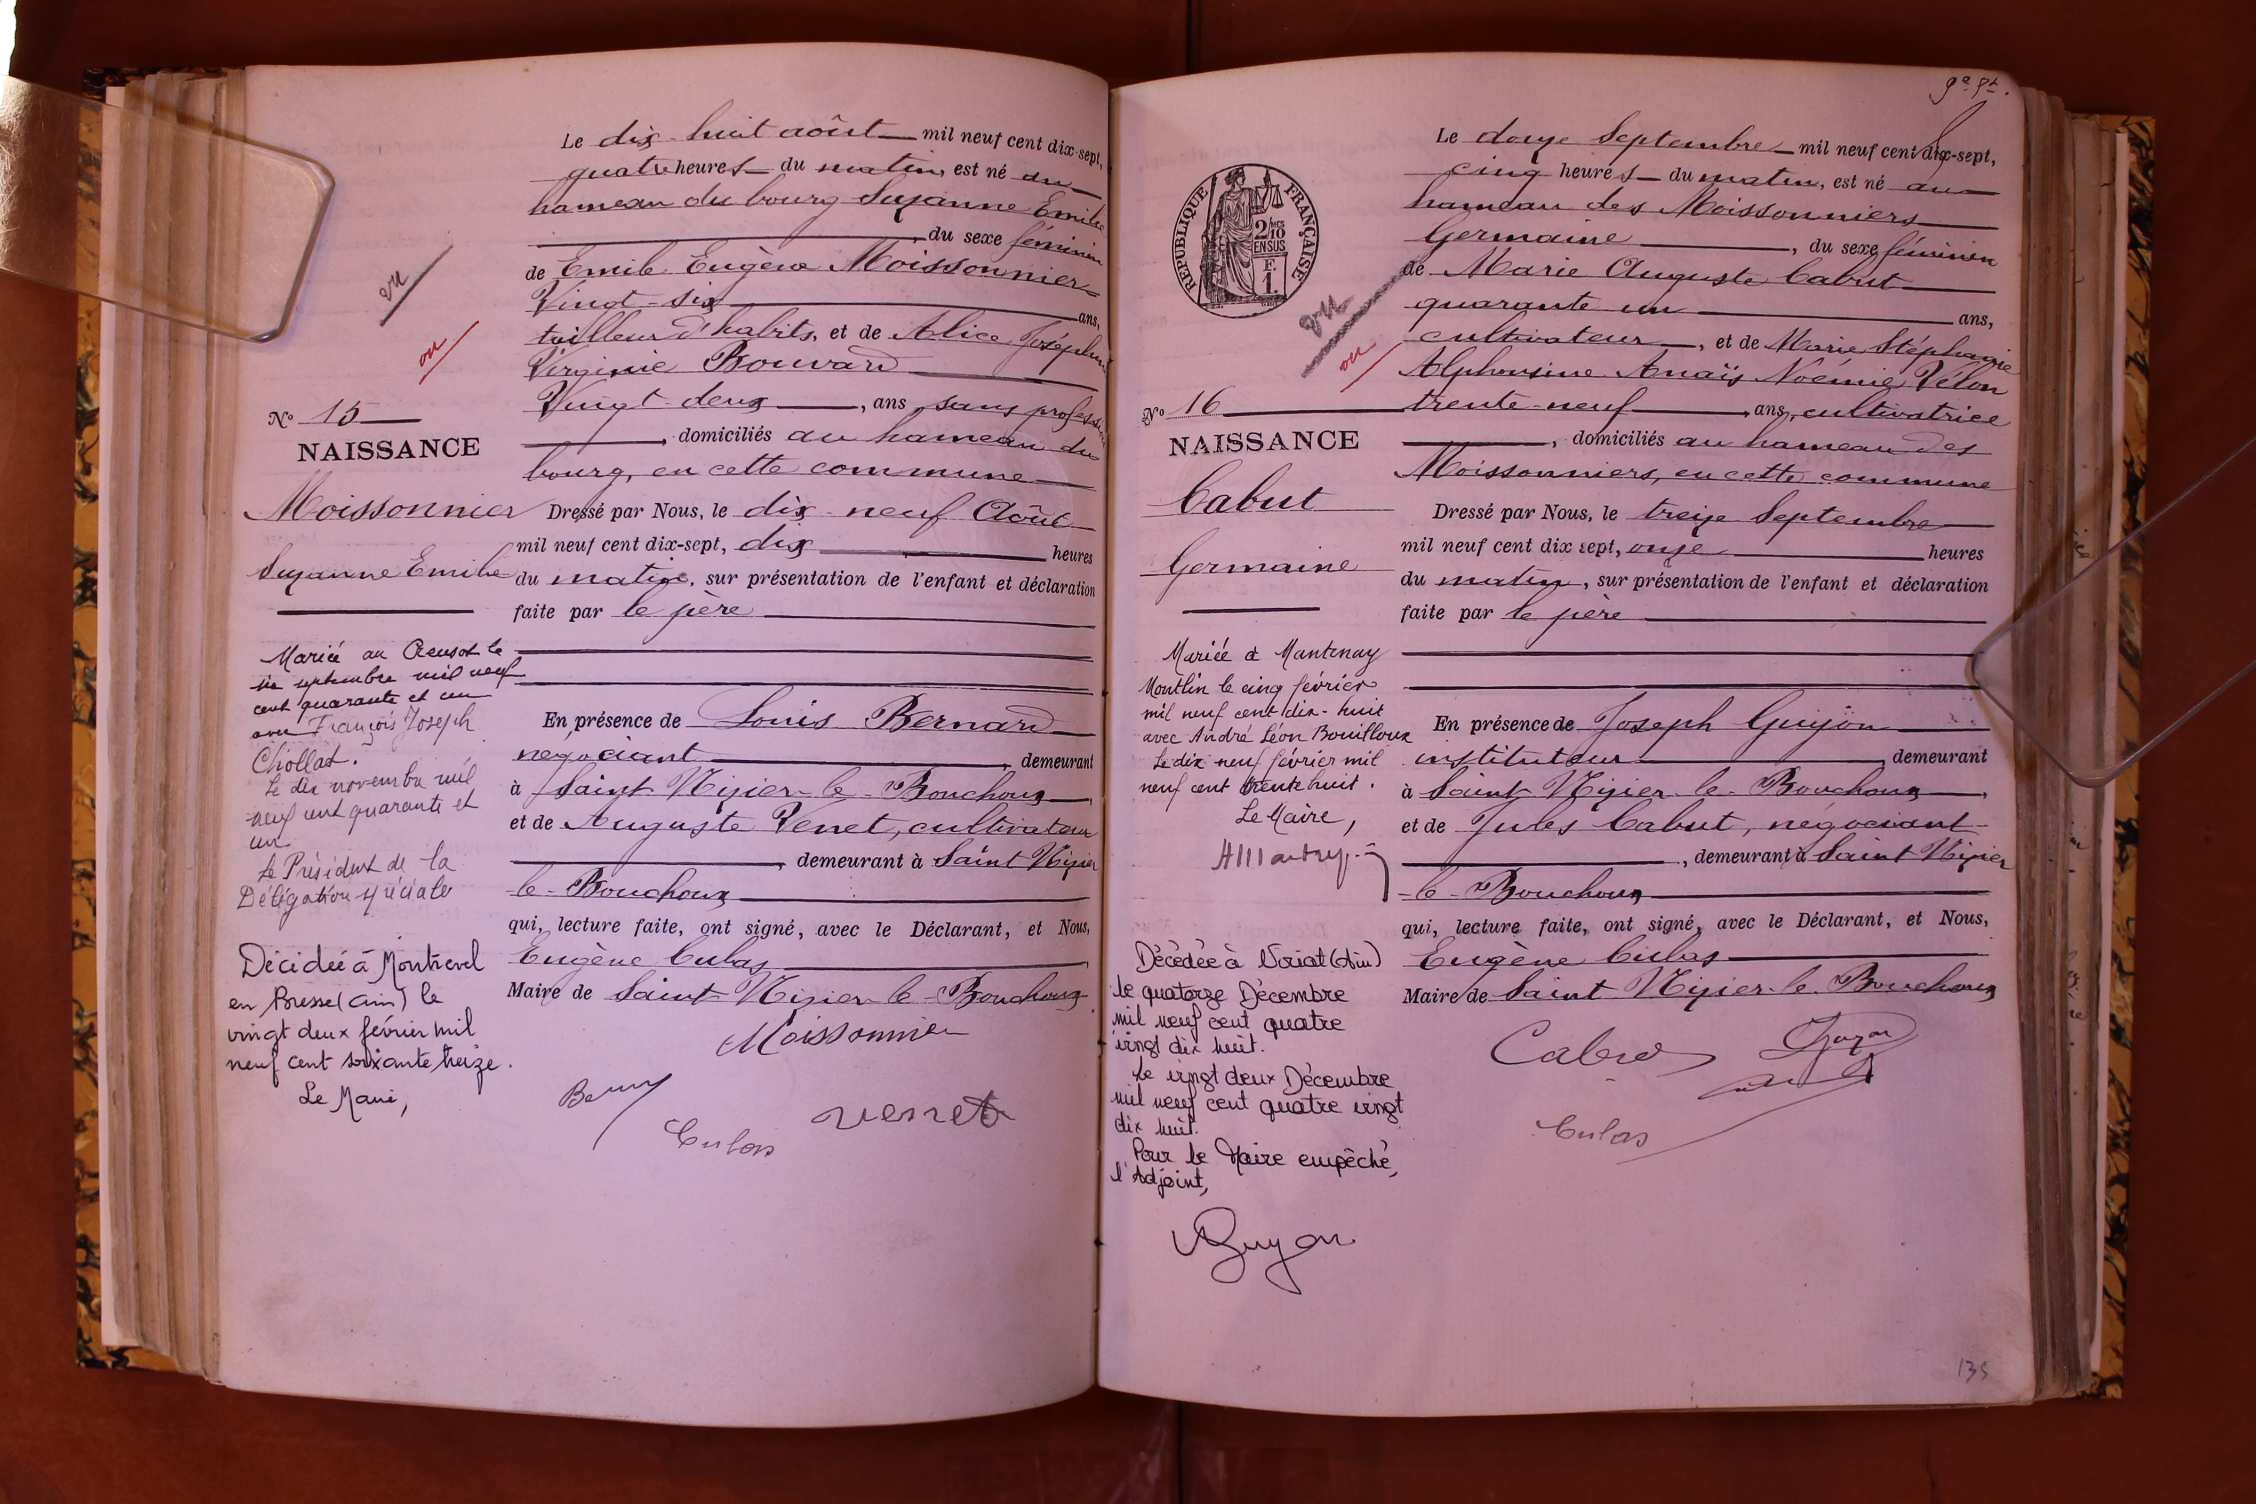 Le dix-huit août mil neuf cent dix-sept,
quatre heures du matin, est né au
hameau du bourg Suzanne Emilie
, du sexe féminin
de Emile Eugène Moissonnier
Vingt-six ans,
tailleur d'habits, et de Alice Joséphine
Virginie Bouvard
Vingt-deux, ans, sans profession
, domiciliés au hameau du
bourg, en cette commune
Dressé par Nous, le dix-neuf Août
mil neuf cent dix-sept, dix heures
du matin, sur présentation de l'enfant et déclaration
faite par le père
En présence de Louis Bernard
négociant, demeurant
à Saint Nizier-le-Bouchoux,
et de Auguste Venet, cultivateur
, demeurant à Saint Nizier
le-Bouchoux
qui, lecture faite, ont signé, avec le Déclarant, et Nous,
Eugène Culas,
Maire de Saint Nizier-le-Bouchoux
Moissonnier
Venet
Culas
vu
vu
No 15
NAISSANCE
Moissonnier
Suzanne Emilie
Mariée au Creusot le
six septembre mil neuf
cent quarante et un
avec François Joseph
Chollat.
Le dix novembre mil
neuf cent quarante et
un
Le Président de la
Délégation spéciale
Décidée à Montrevel
en Bresse (Ain) le
vingt deux février mil
neuf cent soixante treize.
Le Maire,
9e Pt.
Le douze Septembre mil neuf cent dix-sept,
cinq heures du matin, est né au
hameau des Moissonniers
Germaine, du sexe féminin
de Marie Auguste Cabut
quarante un ans,
cultivateur, et de Marie Stéphanie
Alphonsine Anaïs Noémie Vélon
trente-neuf, ans, cultivatrice
, domiciliés au hameau des
Moissonniers, en cette commune
Dressé par Nous, le treize Septembre
mil neuf cent dix sept, onze heures
du matin, sur présentation de l'enfant et déclaration
faite par le père
En présence de Joseph Guyon
instituteur, demeurant
à Saint Nizier-le-Bouchoux,
et de Jules Cabut, négociant
, demeurant à Saint Nizier
le-Bouchoux
qui, lecture faite, ont signé, avec le Déclarant, et Nous,
Eugène Culas
Maire de Saint Nizier-le-Bouchoux
Culas
RÉPUBLIQUE FRANÇAISE
2/10
EN SUS
F.
1.
vu
vu
No 16
NAISSANCE
Cabut
Germaine
Mariée à Mantenay
Montlin le cinq février
mil neuf cent dix-huit
avec André Léon Bouilloux
Le dix neuf février mil
neuf cent trente huit.
Le Maire,
Décédée à Viriat (Ain)
le quatorze Décembre
mil neuf cent quatre
vingt dix huit.
le vingt deux Décembre
mil neuf cent quatre vingt
dix huit.
Pour le Maire empêché,
l'Adjoint,
Guyon
135